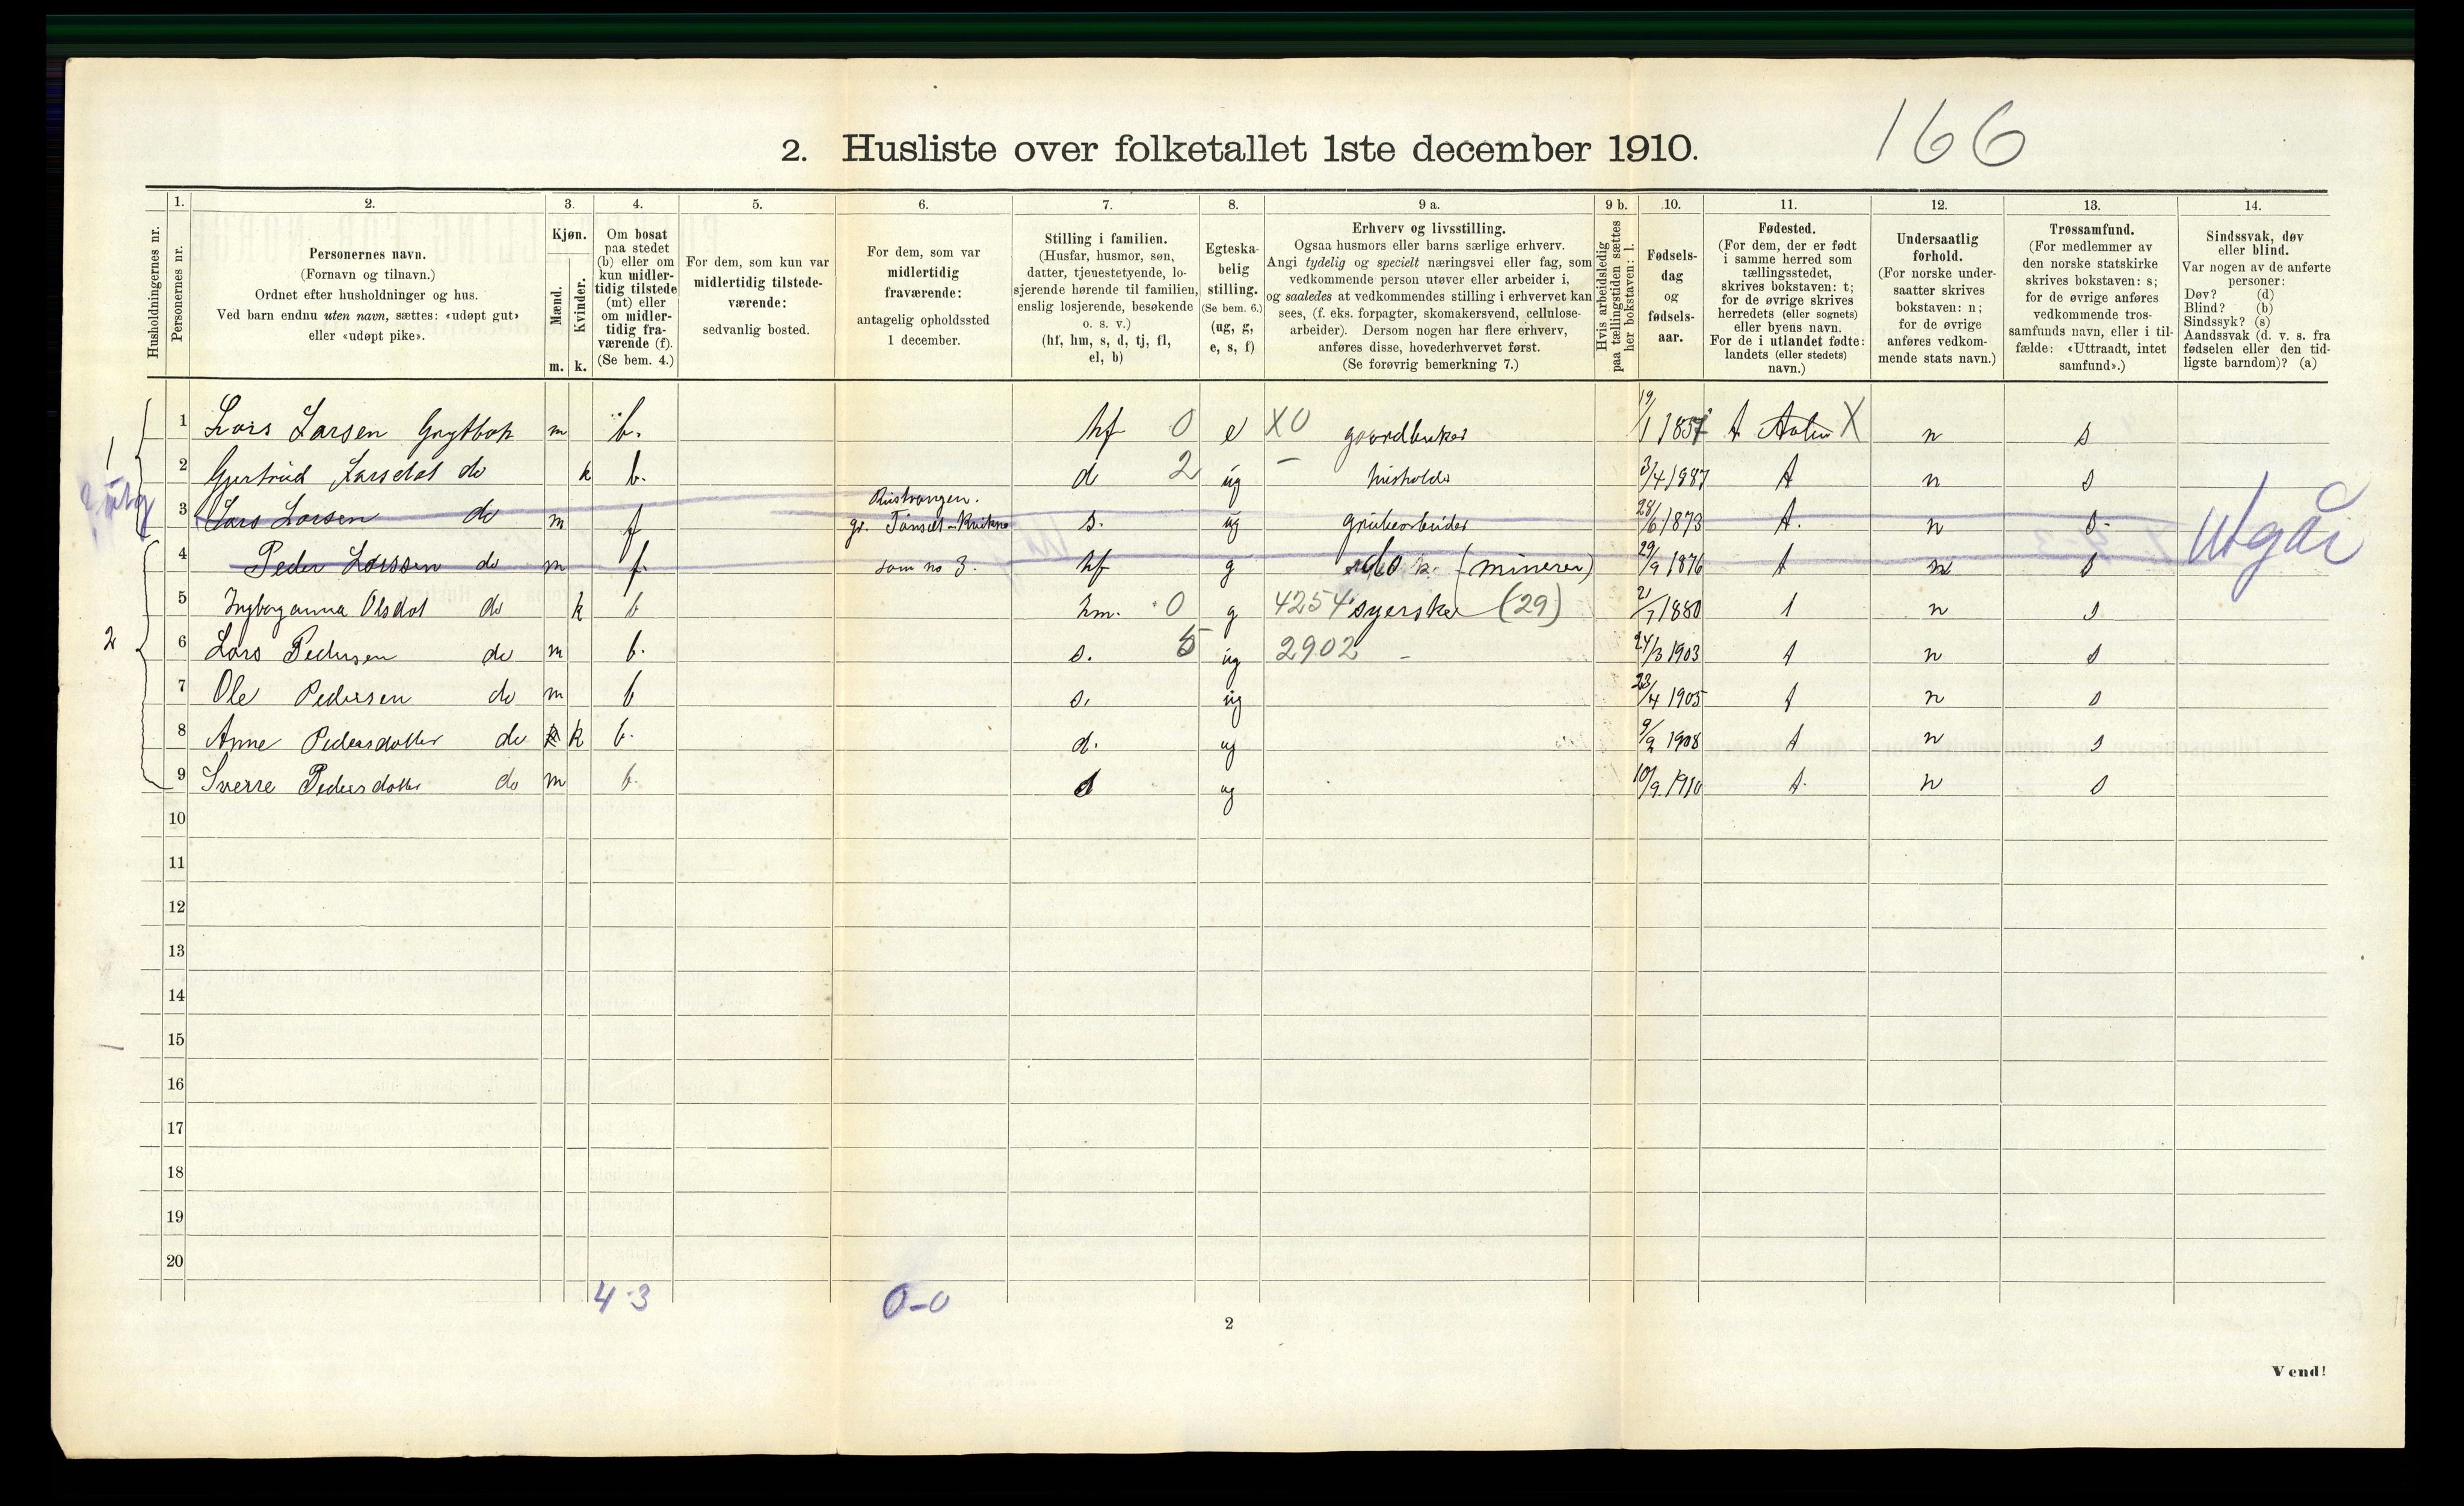 166
2. Husliste over folketallet 1ste december 1910.
Husholdningernes nr.
1. Personernes nr.
2. Personernes navn.
(Fornavn og tilnavn.)
Ordnet efter husholdninger og hus.
Ved barn endnu uten navn, sættes: «udøpt gut»
eller «udøpt pike».
3. Kjøn.
Mænd. m.
Kvinder. k.
4. Om bosat
paa stedet
(b) eller om
kun midler-
tidig tilstede
(mt) eller
om midler-
tidig fra-
værende (f).
(Se bem. 4.)
5. For dem, som kun var
midlertidig tilstede-
værende:
sedvanlig bosted.
6. For dem, som var
midlertidig
fraværende:
antagelig opholdssted
1 december.
7. Stilling i familien.
(Husfar, husmor, søn,
datter, tjenestetyende, lo-
sjerende hørende til familien,
enslig losjerende, besøkende
o. s. v.)
(hf, hm, s, d, tj, fl,
el, b)
8. Egteska-
belig
stilling.
(Se bem. 6.)
(ug, g,
e, s, f)
9 a. Erhverv og livsstilling.
Ogsaa husmors eller barns særlige erhverv.
Angi tydelig og specielt næringsvei eller fag, som
vedkommende person utøver eller arbeider i,
og saaledes at vedkommendes stilling i erhvervet kan
sees, (f. eks. forpagter, skomakersvend, cellulose-
arbeider). Dersom nogen har flere erhverv,
anføres disse, hovederhvervet først.
(Se forøvrig bemerkning 7.)
9 b. Hvis arbeidsledig
paa tællingstiden sættes
her bokstaven: l.
10. Fødsels-
dag
og
fødsels-
aar.
11. Fødested.
(For dem, der er født
i samme herred som
tællingsstedet,
skrives bokstaven: t;
for de øvrige skrives
herredets (eller sognets)
eller byens navn.
For de i utlandet fødte:
landets (eller stedets)
navn.)
12. Undersaatlig
forhold.
(For norske under-
saatter skrives
bokstaven: n;
for de øvrige
anføres vedkom-
mende stats navn.)
13. Trossamfund.
(For medlemmer av
den norske statskirke
skrives bokstaven: s;
for de øvrige anføres
vedkommende tros-
samfunds navn, eller i til-
fælde: «Uttraadt, intet
samfund».)
14. Sindssvak, døv
eller blind.
Var nogen av de anførte
personer:
Døv? (d)
Blind? (b)
Sindssyk? (s)
Aandssvak (d. v. s. fra
fødselen eller den tid-
ligste barndom)? (a)
1 1 Lars Larsen m b. hf 0 e X0 gaardbruker 19/1 1837 t X n s
2 Gjertrud Larsdat do k b. d 2 ug - husholds 3/4 1887 t n s
3 Lars Larsen do m f gr. Tönset-Kvikne s. ug grubearbeider 28/6 1873 t. n s- Utgår
4 Peder Larssen do m f. som no 3. hf g do (minerer) 29/9 1876 t n s
2 5 Ingborganna Olsdat do k b hm. 0 g 4254 syerske (29) 21/7 1880 t n s
6 Lars Pedersen do m b. s. 5 ug 2902 - 24/3 1903 t n s
7 Ole Pedersen do m b s. ug 23/4 1905 t n s
8 Anne Pedersdotter do k b. d. ug 9/2 1908 t n s
9 Sverre Pedersdotter do m b. s ug 10/9 1910 t. n s
10
11
12
13
14
15
16
17
18
19
20
4-3 0-0
2
Vend!